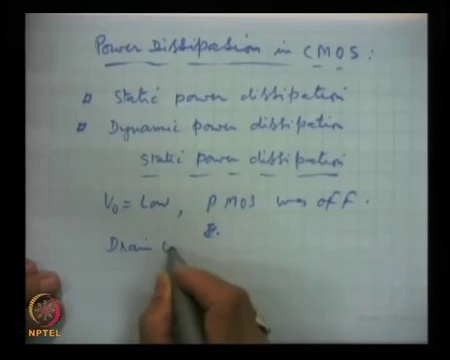 Power Dissipation in CMOS :
Static power dissipation
Dynamic power dissipation
static power dissipation
V₀ = Low , PMOS was off .
Drain
NPTEL